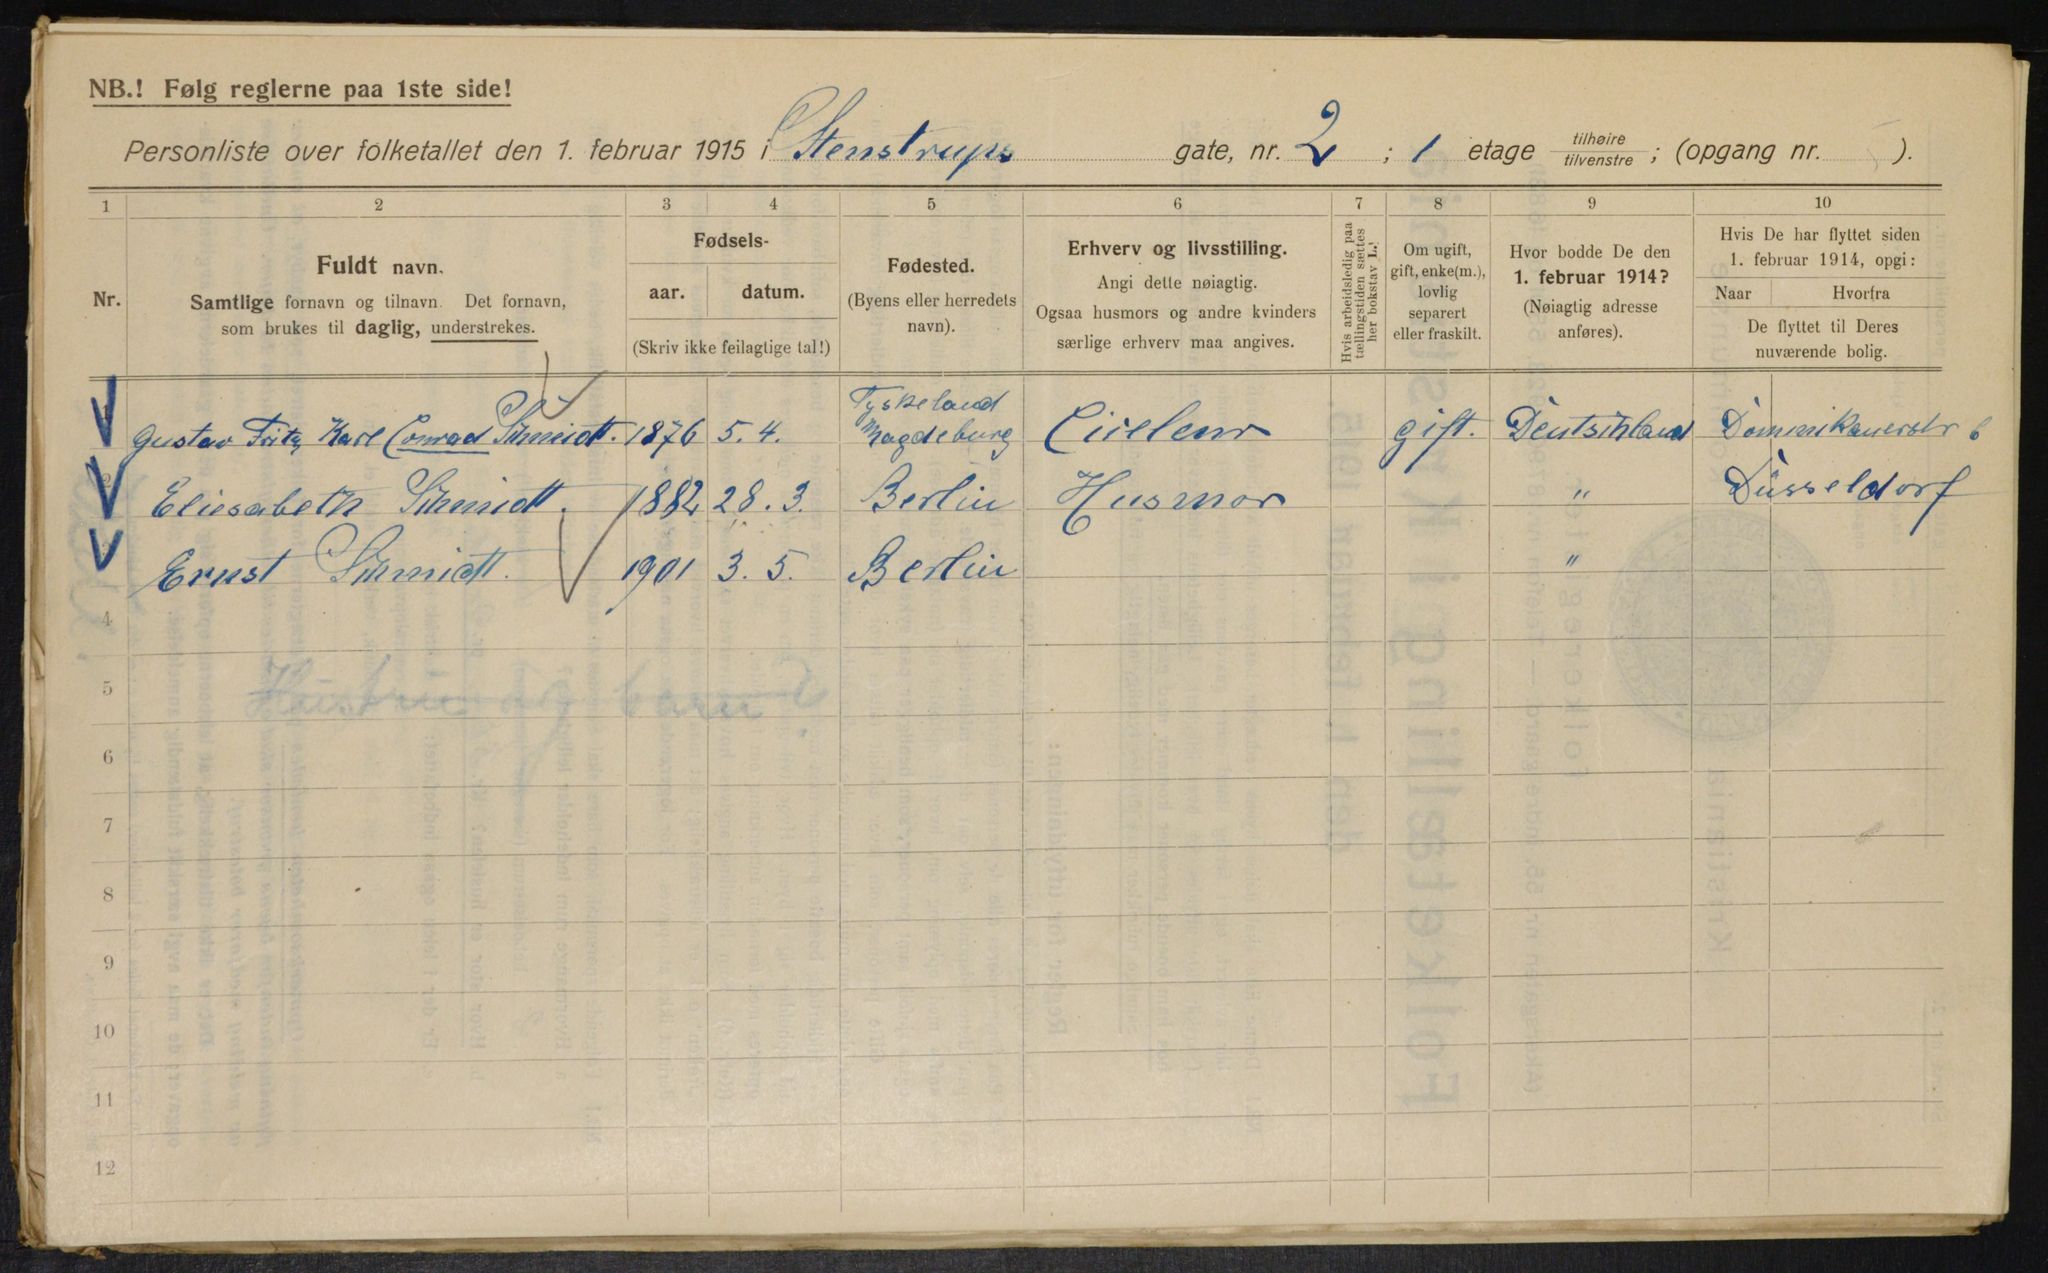 NB.! Følg reglerne paa 1ste side!
Personliste over folketallet den 1. februar 1915 i Stenstrups gate, nr. 2 ; 1 etage tilhøire tilvenstre ; (opgang nr. ).
1 2 3 4 5 6 7 8 9 10
Nr.
Fuldt navn.
Samtlige fornavn og tilnavn. Det fornavn,
som brukes til daglig, understrekes.
Fødsels-
aar. datum.
(Skriv ikke feilagtige tal!)
Fødested.
(Byens eller herredets
navn).
Erhverv og livsstilling.
Angi dette nøiagtig.
Ogsaa husmors og andre kvinders
særlige erhverv maa angives.
Hvis arbeidsledig paa
tællingstiden sættes
her bokstav L.!
Om ugift,
gift, enke(m.),
lovlig
separert
eller fraskilt.
Hvor bodde De den
1. februar 1914?
(Nøiagtig adresse
anføres).
Hvis De har flyttet siden
1. februar 1914, opgi:
Naar Hvorfra
De flyttet til Deres
nuværende bolig.
Gustav Fritz Karl Conrad Schmidt. 1876 5. 4. Tyskeland Magdeburg gift. Deutschland Dominikanerstr 6
2 Eliesabeth Schmidt. 1882 28. 3. Berlin Husmor " Düsseldorf
3 Ernst Schmidt. 1901 3. 5. Berlin "
4
5
6
7
8
9
10
11
12